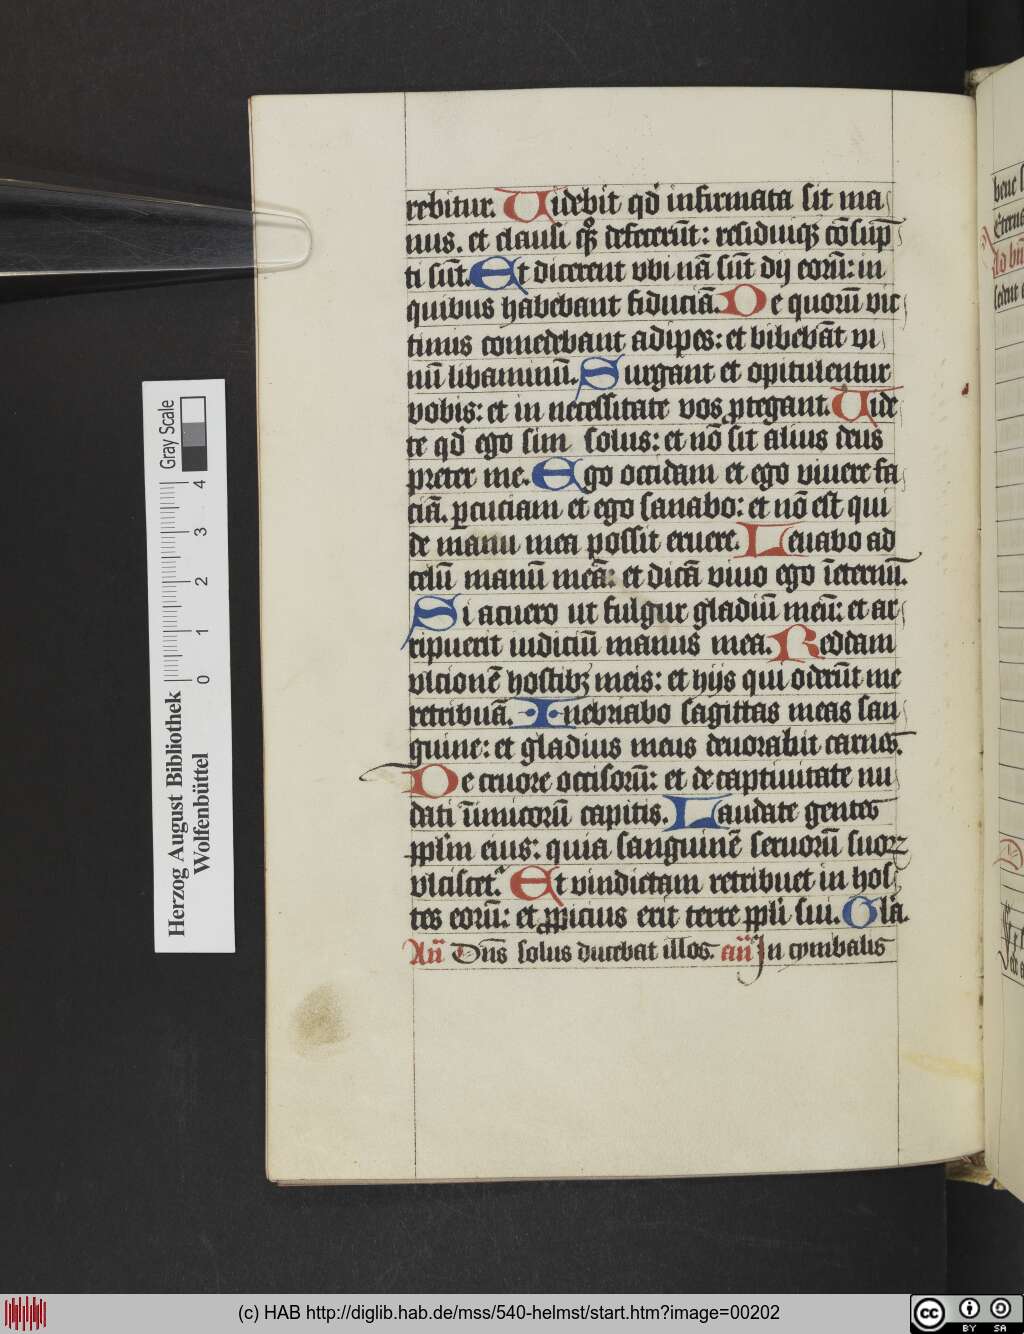 rebitur. Uidebit qd infirmata sit ma
nus. et clausi qq defecerūt: residuiqz cōsūp
ti sūt. Et dicerent vbi nā sūt dij eorū: in
quibus habebant fiduciā. De quorū vic
timis comedebant adipes: et bibebāt vi
nū libaminū. Surgant et opitulentur
vobis: et in necessitate vos ꝓtegant. Uide
te qd ego sim solus: et nō sit alius deus
preter me. Ego occidam et ego viuere fa
ciā. ꝑcuciam et ego sanabo: et nō est qui
de manu mea possit eruere. Leuabo ad
celū manū meā: et dicā viuo ego īeternū.
Si acuero ut fulgur gladiū meū: et ar
ripuerit iudiciū manus mea. Reddam
vlcionē hostibz meis: et hijs qui oderūt me
retribuā. Inebriabo sagittas meas san
guine: et gladius meus deuorabit carnes.
De cruore occisorū: et de captiuitate nu
dati īimicorū capitis. Laudate gentes
pplm eius: quia sanguinē seruorū suorꝝ
vlciscet. Et vindictam retribuet in hos
tes eorū: et ꝓpicius erit terre ppli sui. Gla.
Añ Dns solus ducebat illos. añ In cymbalis
Gray Scale
0 1 2 3 4
Herzog August Bibliothek
Wolfenbüttel
(c) HAB http://diglib.hab.de/mss/540-helmst/start.htm?image=00202
cc BY SA